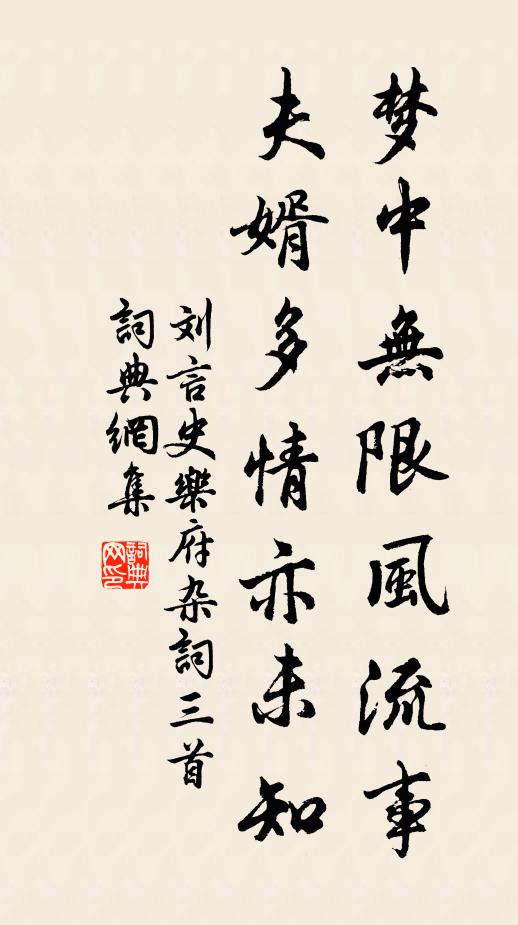 梦中無限風流事
夫婿多情亦未知
刘言史樂府杂詞三首
詞典網集
詞典网印